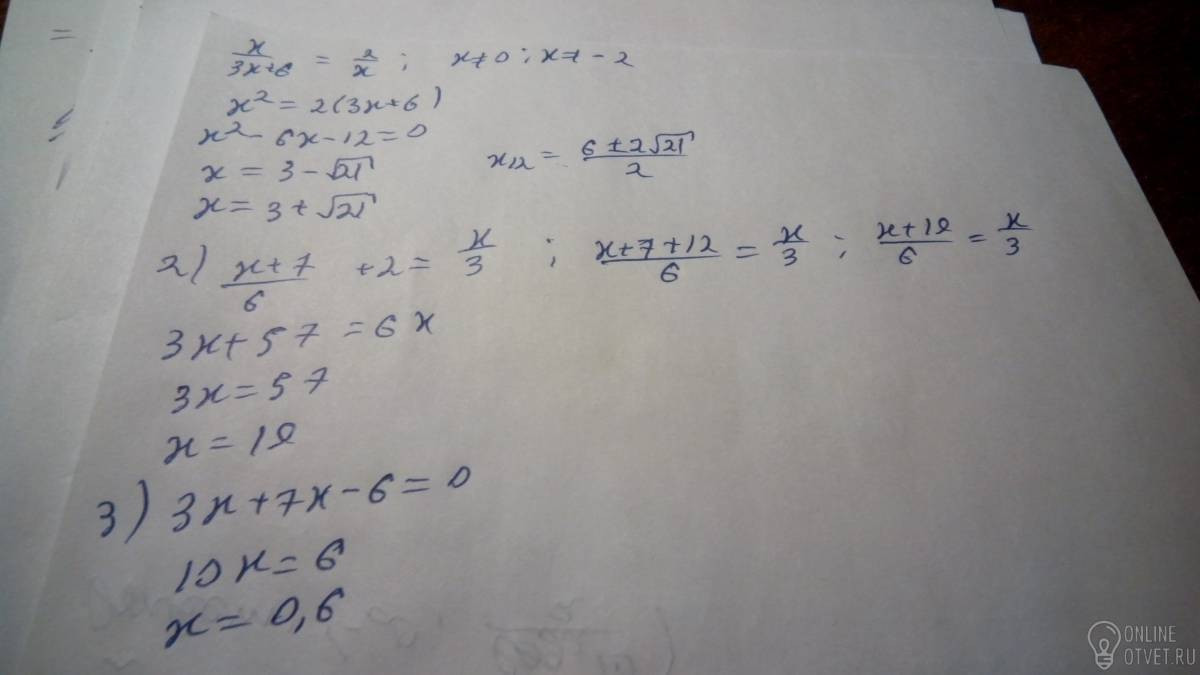 x/(3x+6) = 2/x ; x≠0 ; x≠-2
x² = 2(3x+6)
x² - 6x - 12 = 0
x = 3 - √21 x₁₂ = (6 ± 2√21)/2
x = 3 + √21
2) (x+7)/6 + 2 = x/3 ; (x+7+12)/6 = x/3 ; (x+19)/6 = x/3
3x + 57 = 6x
3x = 57
x = 19
3) 3x + 7x - 6 = 0
10x = 6
x = 0,6
ONLINE
OTVET.RU